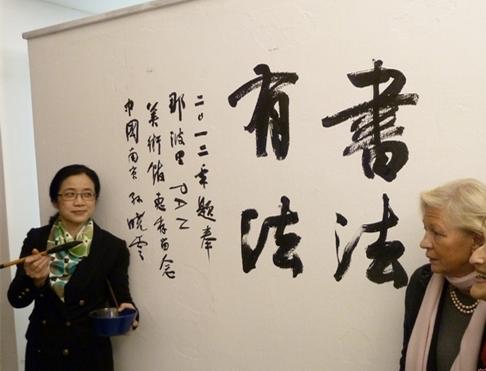 書法
有法
二〇一二年題奉
那波里 PAN
美術館惠存留念
中國南京 孫曉雲